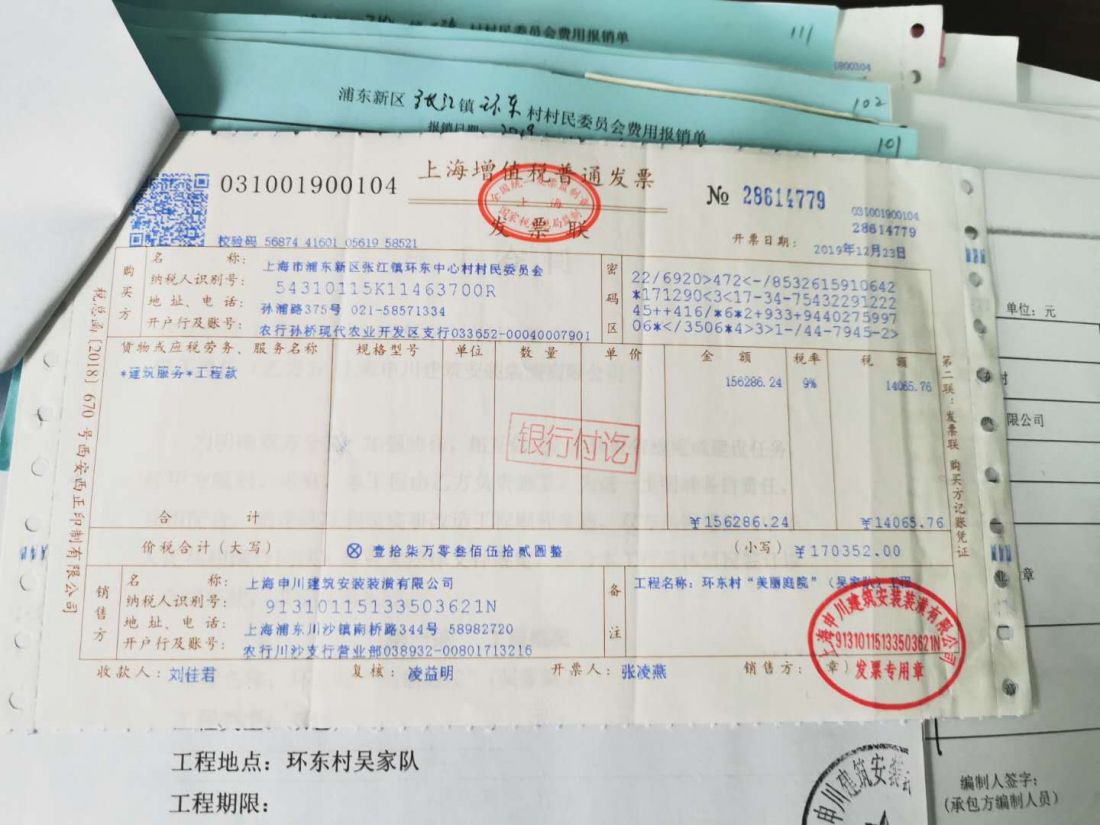 村村民委员会费用报销单
111
浦东新区 张江 镇 环东 村村民委员会费用报销单
102
报销日期： 2019
101
031001900104
上海增值税普通发票
发票联
全国统一发票监制章
上海
国家税务总局监制
№ 28614779
031001900104
28614779
校验码 56874 41601 05619 58521
开票日期： 2019年12月23日
购买方
名称： 上海市浦东新区张江镇环东中心村村民委员会
纳税人识别号： 54310115K11463700R
地址、电话： 孙浦路375号 021-58571334
开户行及账号： 农行孙桥现代农业开发区支行033652-00040007901
密码区
22/6920>472<-/8532615910642
*171290<3<17-34-75432291222
45++416/*6*2+933+9440275997
06*</3506*4>3>1-/44-7945-2>
货物或应税劳务、服务名称 规格型号 单位 数量 单价 金额 税率 税额
*建筑服务*工程款 156286.24 9% 14065.76
银行付讫
合计 ￥156286.24 ￥14065.76
价税合计（大写） ⊗ 壹拾柒万零叁佰伍拾贰圆整 （小写） ￥170352.00
销售方
名称： 上海申川建筑安装装潢有限公司
纳税人识别号： 91310115133503621N
地址、电话： 上海浦东川沙镇南桥路344号 58982720
开户行及账号： 农行川沙支行营业部038932-00801713216
备注
工程名称：环东村“美丽庭院”（吴家队）工程
上海申川建筑安装装潢有限公司
91310115133503621N
发票专用章
收款人： 刘佳君 复核： 凌益明 开票人： 张凌燕 销售方：（章）
税总函[2018]670号西安西正印制有限公司
第二联：发票联 购买方记账凭证
单位：元
限公司
章
工程地点：环东村吴家队
工程期限：
申川建筑安装
编制人签字：
（承包方编制人员）